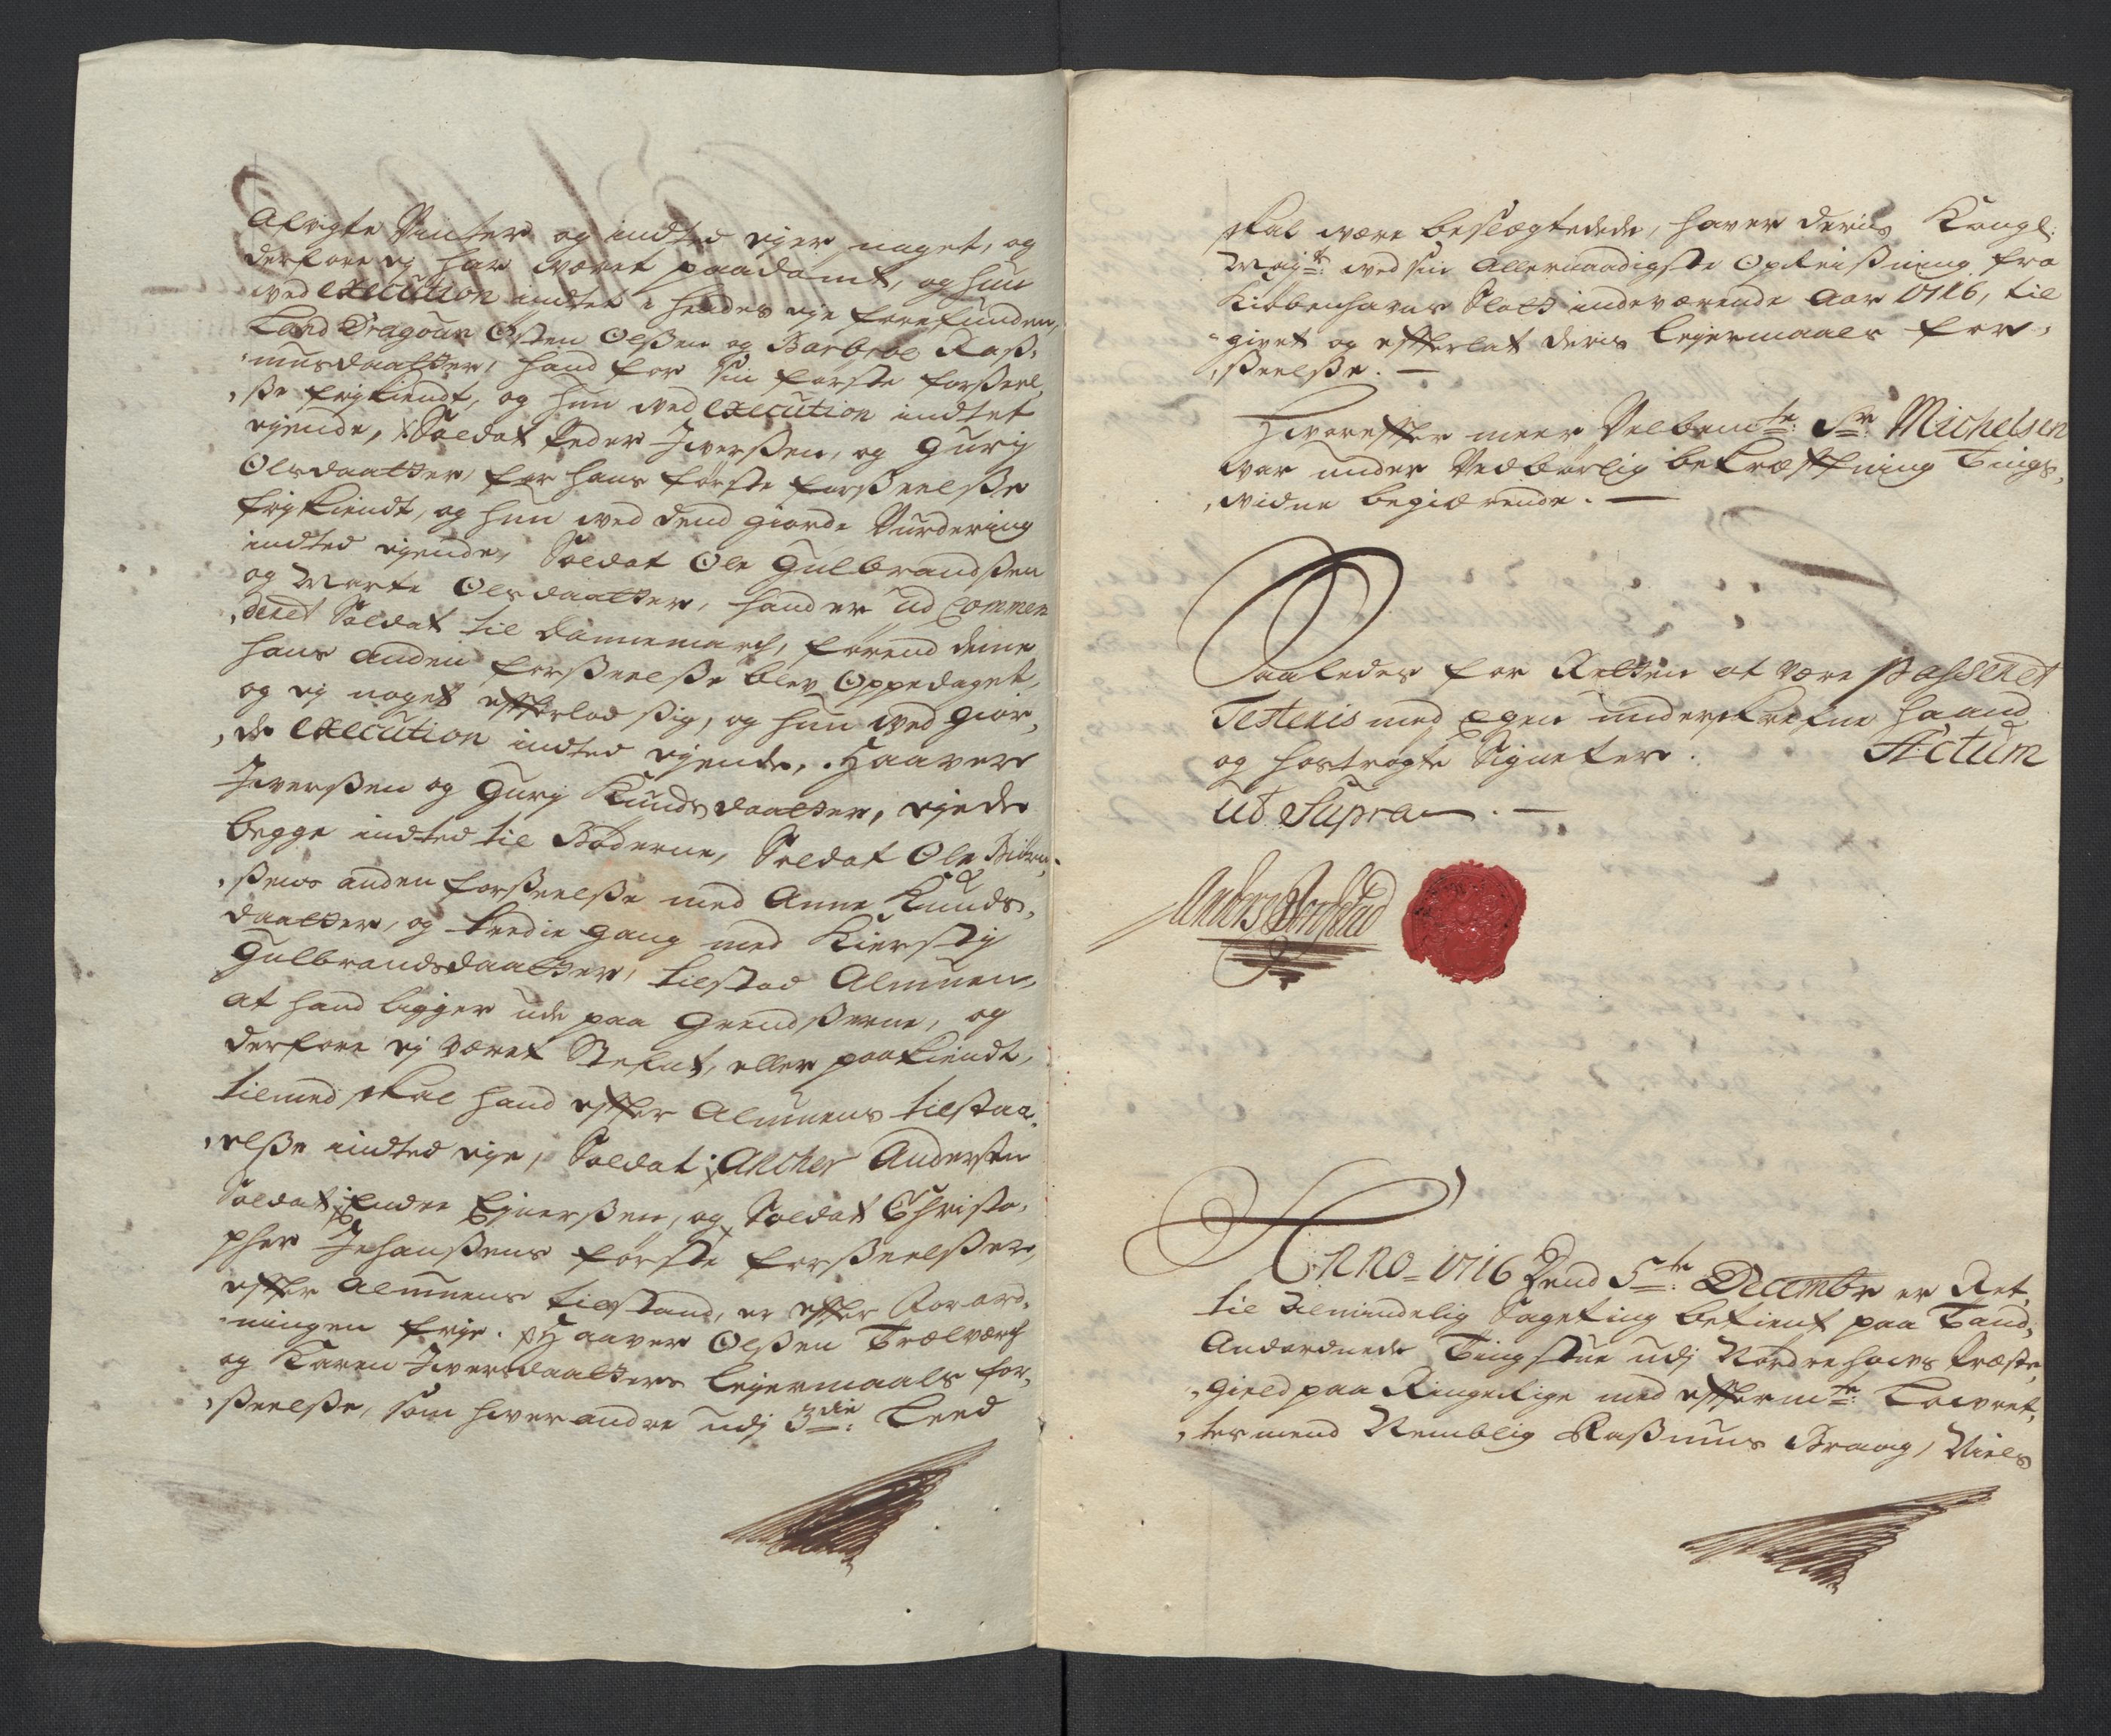 Afvigte Vinter og indted ejer noget, og
derfore ej har været paadømt, og hun
ved execution indted i hendes eje forefunden,
Land Dragoun Østen Olßen og Barbroe Raß-
musdaatter, hand for sin første forßeel-
ße frikiendt, og hun ved execution indtet
ejende, Soldat Peder Iverßen, og Gurj
Olsdaatter, for hans første forßeelße
frjkiendt, og hun ved dend giorde Vurdering
indted ejende, Soldat Ole Gulbrandßen
og Marte Olsdaatter, hand er ud Commen
deret Soldat til Dannemarch, førend denne
hans anden forßeelße blev Oppedaget,
og ej noget efterlod ßig, og hun ved gior-
de execution indted ejende, Haaver
Iverßen og Gurj Knudsdaatter, ejede
begge indted til Bøderne, Soldat Ole Biørn-
ßens anden forßeelße med Anne Knuds-
daatter, og tredie gang med Kierstj
Gulbrandsdaatter, tilstod Almuen,
at hand ligger ude paa Grendßerne, og
derfore ej været Stefnt, eller paakiendt,
tilmed skal hand effter Almuens tilstaa-
elße indted eje, Soldat Ancher Andersen
Soldat Endre Ejnerßen, og Soldat Christo-
pher Johanßens første forßeelßer,
effter Almuens tilstand, er effter Forord-
ningen frje. Haaver Olßen Trælværch
og Karen Iversdaatters lejermaals for-
ßeelße, som hverandre udj 3die: Leed
skal være beslægtedede, haver deris Kongl:
Majt: ved sin Allernaadigste Opreißning fra
Kiøbenhavns Slott indeværende Aar 1716, til
givet og effterlat deris lejermaals for-
ßeelße. —
Hvoreffter meer Velbemte: Sr: Michelsen
var under Vedbørlig bekræfftning Tings-
vidne begiærende. —
Saaledes for Retten at være passeret
Testeris med Egen underskrefne haand
og hostrøgte Signeter. Actum
ut Supra —
Anders
Anno 1716 Dend 5te: Decembr er Ret
til Almindelig Sageting betient paa Tand-
Andordnede Tingstue udj Nordrehovs Præste-
gield paa Ringerige med efftermte: Lavret-
tes mend Nemblig Raßmus Braag, Niels